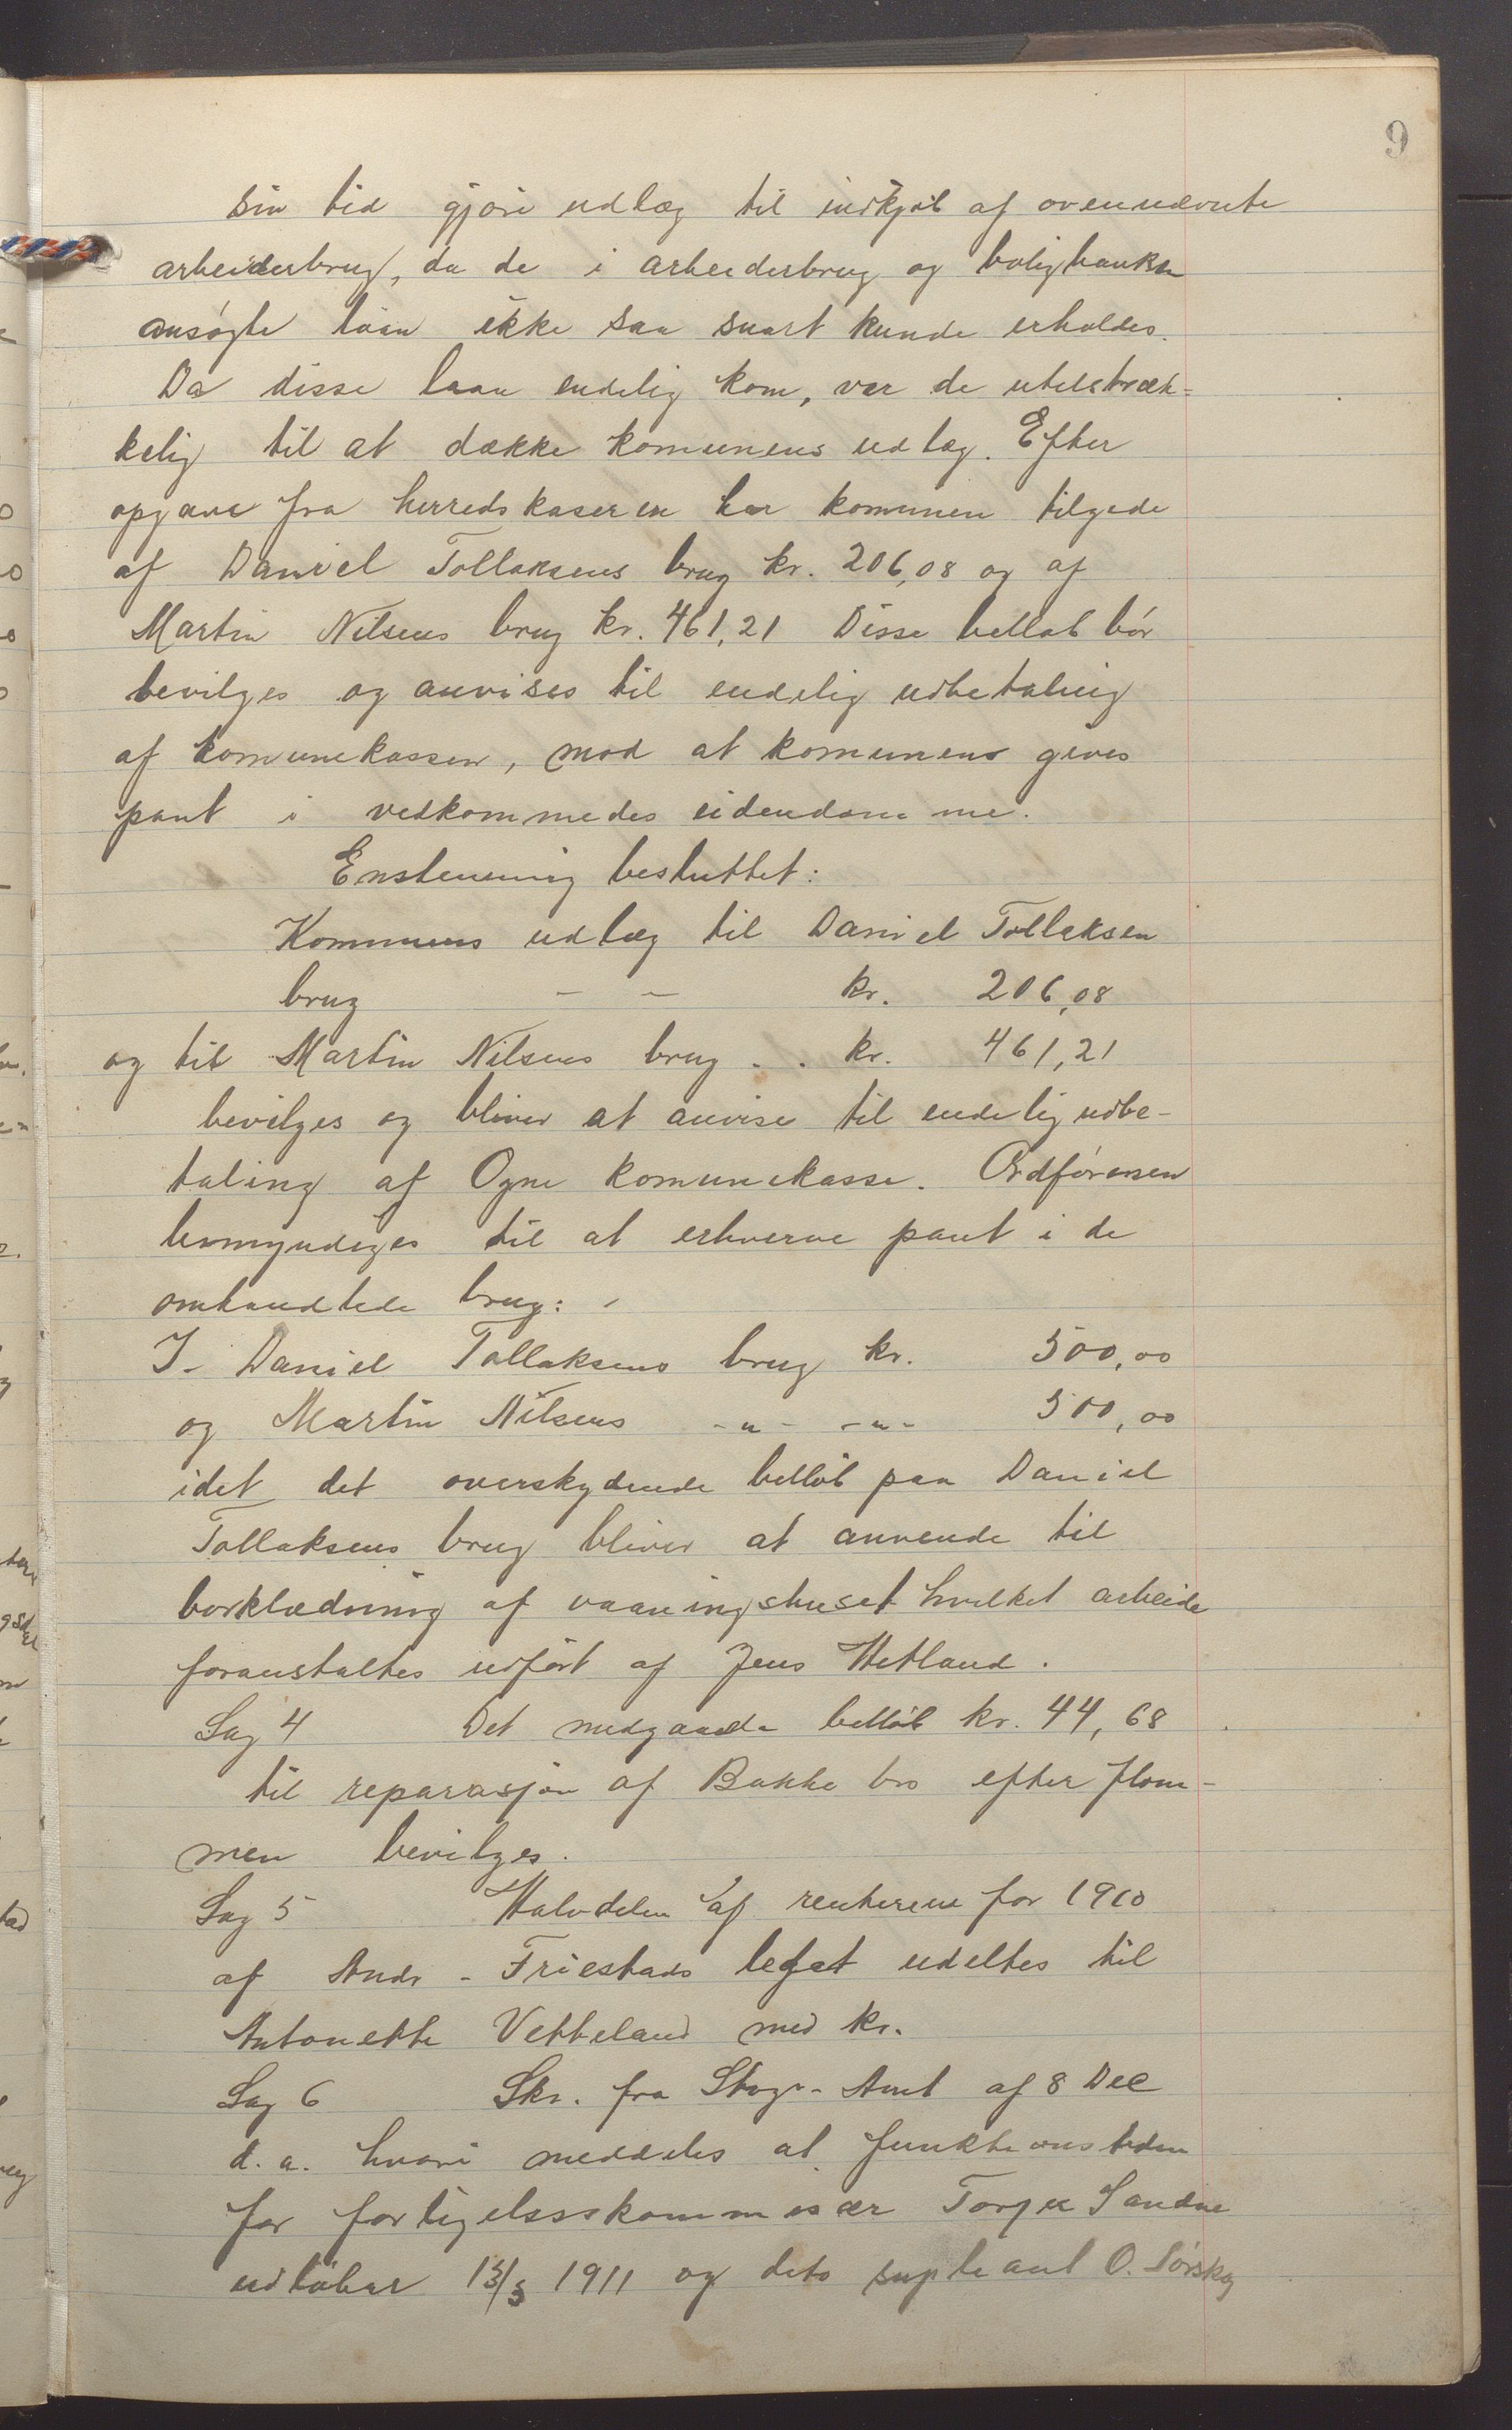 9
sin tid gjöre udlæg til indkjöb af ovennævnte
arbeiderbrug, da de i arbeiderbrug og boligbanken
ansögte laan ikke saa snart kunde erholdes.
Da disse laan endelig kom, var de utilstræk-
kelig til at dække komunens udlæg. Efter
opgave fra herredskaseren har komunen tilgode
af Daniel Tollaksens brug kr. 206,08 og af
Martin Nilsens brug kr. 461,21 Disse belløb bör
bevilges og anvises til endelig udbetaling
af komunekassen, mod at komunens gives
pant i vedkommedes eidendomme.
Enstemmig besluttet:
Kommunens udlæg til Daniel Tollaksen
brug - - kr. 206,08
og til Martin Nilsens brug - . kr. 461,21
bevilges og bliver at anvise til endelig udbe-
taling af Ogne komunekasse. Ordföreren
bemyndiges til at erhverve pant i de
omhandlede brug:
I- Daniel Tollaksens brug kr. 500,00
og Martin Nilsens -"- -"- 500,00
idet det overskydende belløb paa Daniel
Tollaksens brug bliver at anvende til
bordklædning af vaaningshuset hvilket arbeide
foranstaltes udfört af Jens Hetland.
Sag 4 Det medgaaede belløb kr. 44,68
til reparasjon af Bakke bro efter flom-
men bevilges.
Sag 5 Halvdelen af renterene for 1910
af Andr - Friestads legat udeltes til
Antonette Vetteland med kr.
Sag 6 Skr. fra Stav.- Amt af 8 Dec
d. a. hvori meddeles at funktionstiden
for forligelsskommisær Torjer Sandve
udlöber 13/3 1911 og dets supleant O. Sirskog